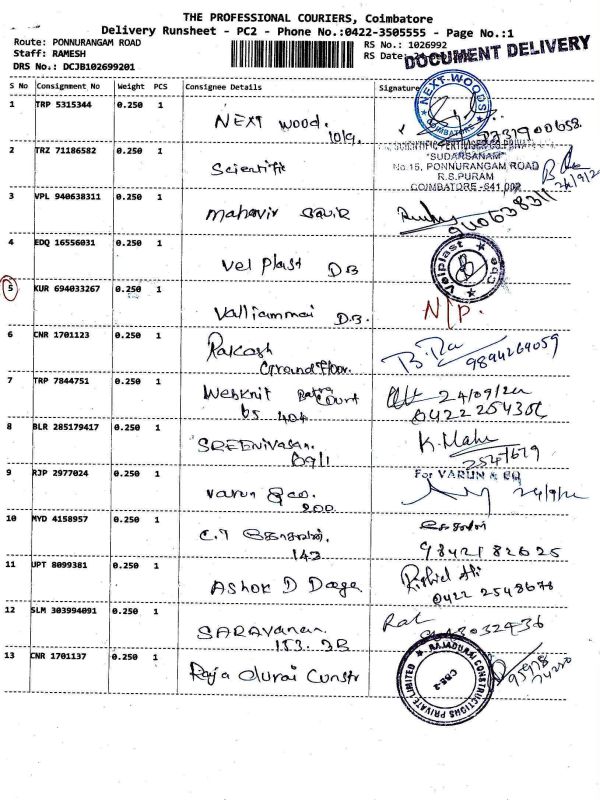 THE PROFESSIONAL COURIERS, Coimbatore
Delivery Runsheet - PC2 - Phone No.:0422-3505555 - Page No.:1
Route: PONNURANGAM ROAD
RS No.: 1026992
DOCUMENT DELIVERY
Staff: RAMESH
RS Date:
DRS No.: DCJB102699201
S No Consignment No Weight PCS Consignee Details Signature
1 TRP 5315344 0.250 1 NEXT Wood. 10/9.
NEXT-WOODS
COIMBATORE
2 TRZ 71186582 0.250 1 Scientific
"SUDARSANAM"
No.15, PONNURANGAM ROAD
R.S.PURAM
COIMBATORE-641 002
3 VPL 940638311 0.250 1 Mahavir
940638311
4 EDQ 16556031 0.250 1 Vel Plast DB
Velplast
5 KUR 694033267 0.250 1 Valliammai D.B. N/P.
6 CNR 1701123 0.250 1 Rakesh
Ground Floor.
9894269059
7 TRP 7844751 0.250 1 Webknit Batra Court
65 404
24/09/22
8 BLR 285179417 0.250 1 SREENivasan.
69/1
K. Mahe
2547679
9 RJP 2977024 0.250 1 Varun & co.
200
For VARUN & CO
24/9/22
10 MYD 4158957 0.250 1
143
9842182625
11 UPT 8099381 0.250 1 Ashok D Daga
0422 2548678
12 SLM 303994091 0.250 1 SARAVANAN.
153. 3B
13 CNR 1701137 0.250 1 Raja durai Cunstr
RAJADURAI CONSTRUCTIONS PRIVATE LIMITED
CBE-2